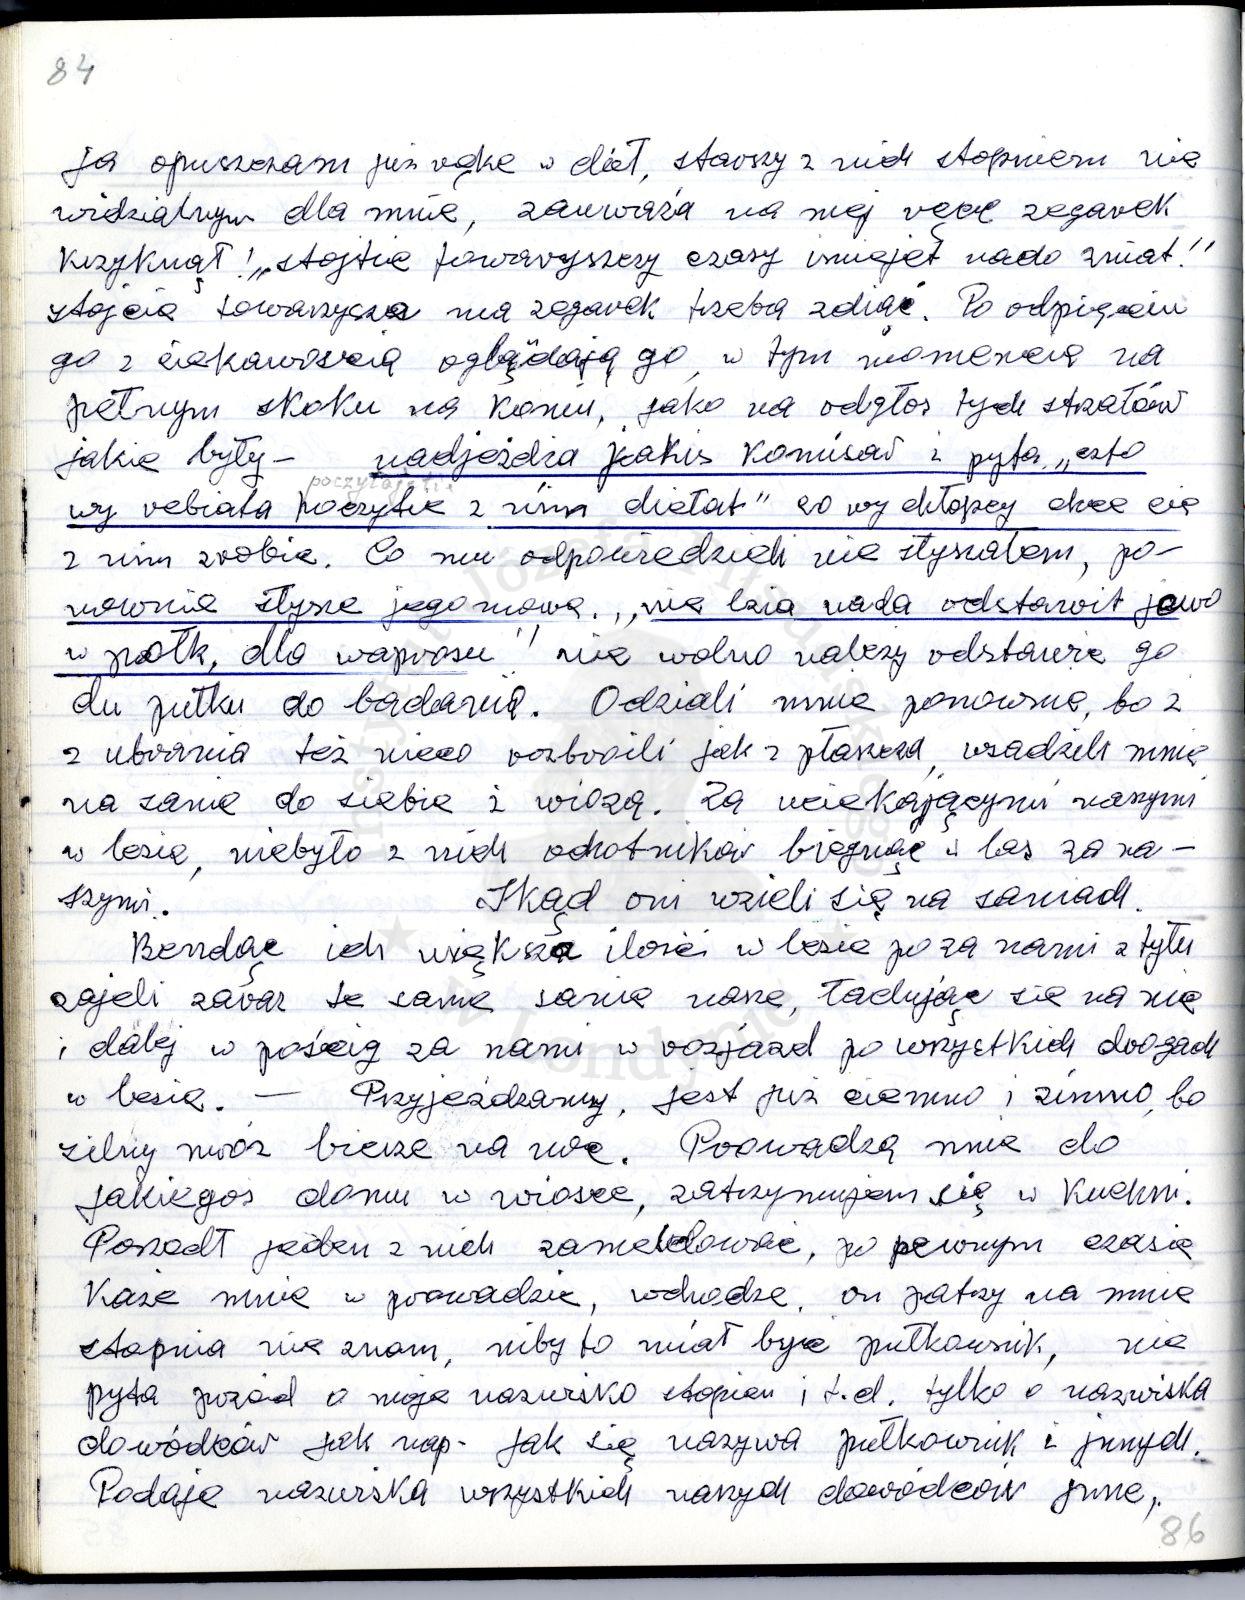 84
ja opuszczam już rękę w dół, starszy z nich stopniem nie
widzialnym dla mnie, zauważa na mej ręcę zegarek
krzyknął! „stojtie towaryszczy czasy imiejet nado zniat!"
stojcie towarzysze ma zegarek trzeba zdiąć. Po odpięciu
go z ciekawością oglądają go, w tym momencie na
pełnym skoku na koniu, jako na odgłos tych strzałów
jakie były – nadjeżdża jakiś komisar i pyta „czto
poczytajetie
wy rebiata poczytie z nim diełat" co wy chłopcy chce cie
z nim zrobić. Co mu odpowiedzieli nie słyszałem, po-
nownie słysze jego mowę. „nie lzia nada odstawit jewo
w połk, dla waprosu" nie wolno należy odstawić go
du pułku do badania. Odziali mnie ponownie, bo i
z ubrania też nieco rozbroili jak z płaszcza, wsadzili mnie
na sanie do siebie i wiozą. Za uciekającymi naszymi
w lesie, niebyło z nich ochotników biegnąć w las za na-
szymi. Skąd oni wzieli się na saniach.
Bendąc ich większa ilość w lesie poza nami z tyłu
zajeli zaraz te same sanie nasze, ładując sie na nie
i dalej w pościg za nami w rozjazd po wszystkich drogach
w lesie. — Przyjeżdżamy, jest już ciemno i zimno, bo
silny mróz bierze na noc. Prowadzą mnie do
jakiegoś domu w wiosce, zatrzymujem się w kuchni.
Poszedł jeden z nich zameldować, po pewnym czasie
każe mnie w prowadzić, wchodze, on patrzy na mnie
stopnia nie znam, niby to miał być pułkownik, nie
pyta przód o moje nazwisko stopien i t.d. tylko o nazwiska
dowódców jak nap- jak się nazywa pułkownik i jnnych.
Podaje nazwiska wszystkich naszych dowódców jnne,
86
Józefa Piłsudskiego
w Londynie